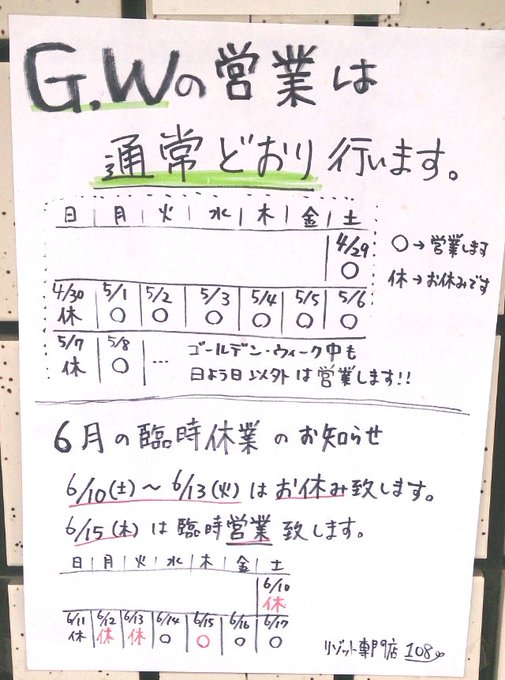 G.Wの営業は
通常どおり行います。
日 月 火 水 木 金 土
4/29
○
○→営業します
休→お休みです
4/30 5/1 5/2 5/3 5/4 5/5 5/6
休 ○ ○ ○ ○ ○ ○
5/7 5/8 … ゴールデン・ウィーク中も
休 ○ 日よう日以外は営業します!!
6月の臨時休業のお知らせ
6/10(土)〜6/13(火)はお休み致します。
6/15(木)は臨時営業致します。
日 月 火 水 木 金 土
6/10
休
6/11 6/12 6/13 6/14 6/15 6/16 6/17
休 休 休 ○ ○ ○ ○
リゾット専門店 108